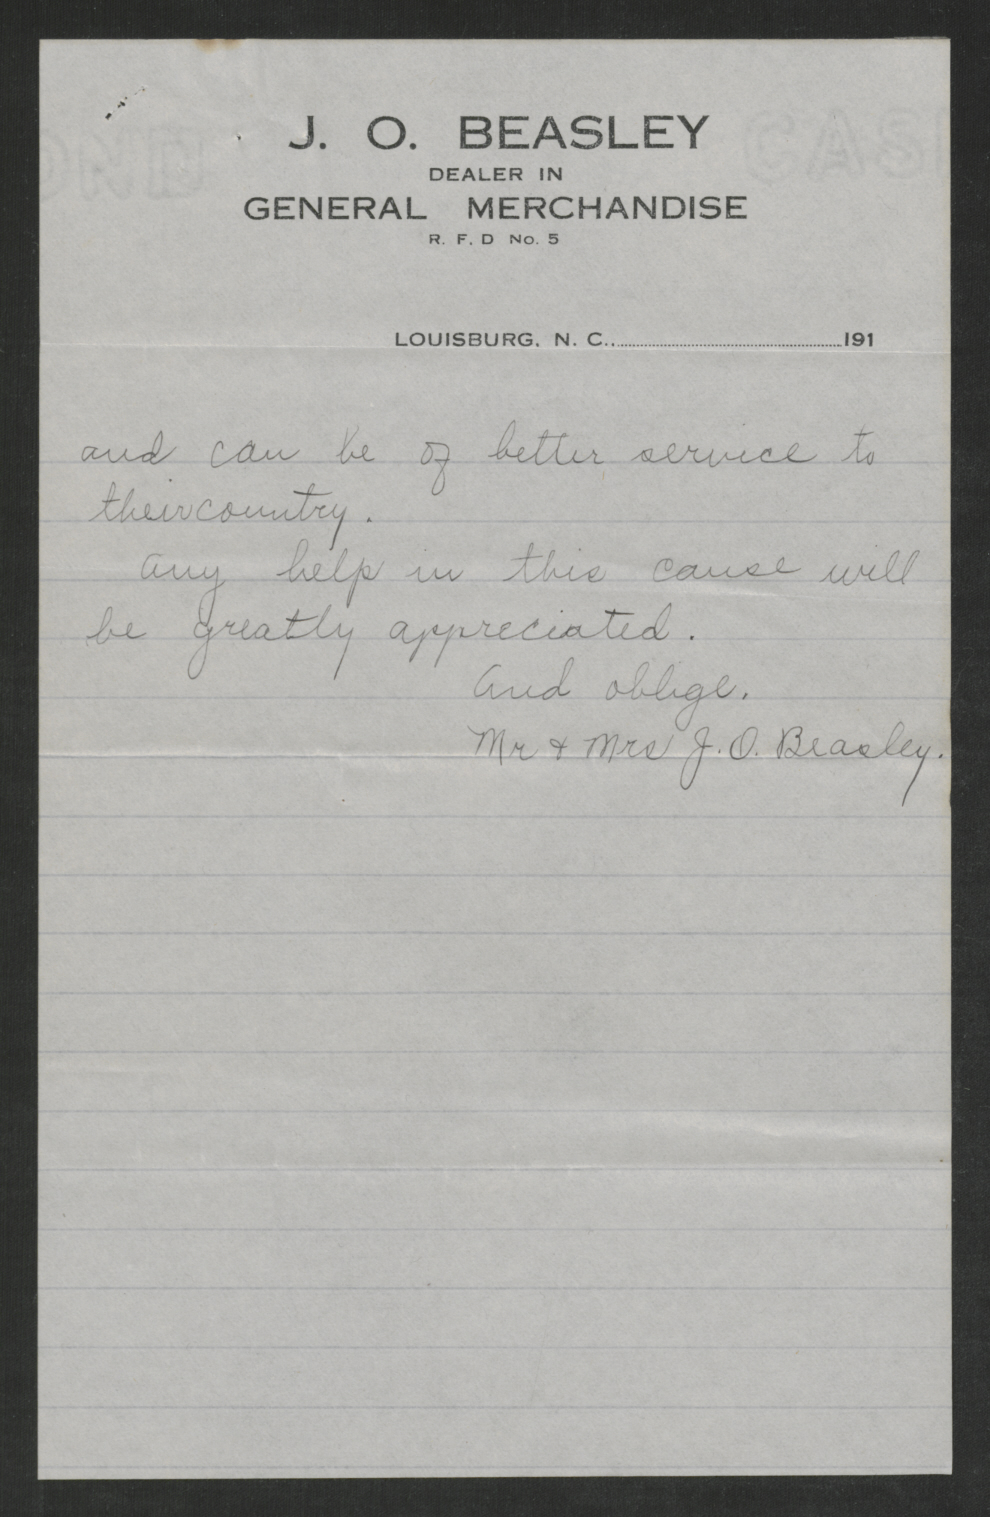 J. O. BEASLEY
DEALER IN
GENERAL MERCHANDISE
R. F. D No. 5
LOUISBURG, N. C. 191
and can be of better service to
their country.
Any help in this cause will
be greatly appreciated.
And oblige.
Mr & Mrs J. O. Beasley.